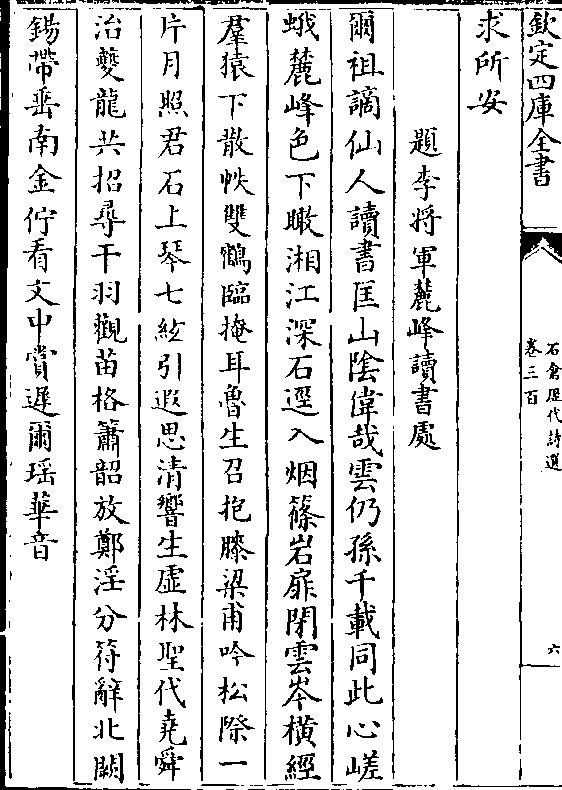 欽定四庫全書
石倉歷代詩選
卷三百
六
求所安
題李將軍麓峰讀書處
爾祖謫仙人讀書匡山陰偉哉雲仍孫千載同此心嵯
峨麓峰色下瞰湘江深石逕入烟篠岩扉閉雲岑橫經
羣猿下散帙雙鶴臨掩耳魯生召抱膝梁甫吟松際一
片月照君石上琴七絃引遐思清響生虛林聖代堯舜
治夔龍共招尋干羽觀苗格簫韶放鄭淫分符辭北闕
錫帶垂南金佇看文中賞遲爾瑶華音